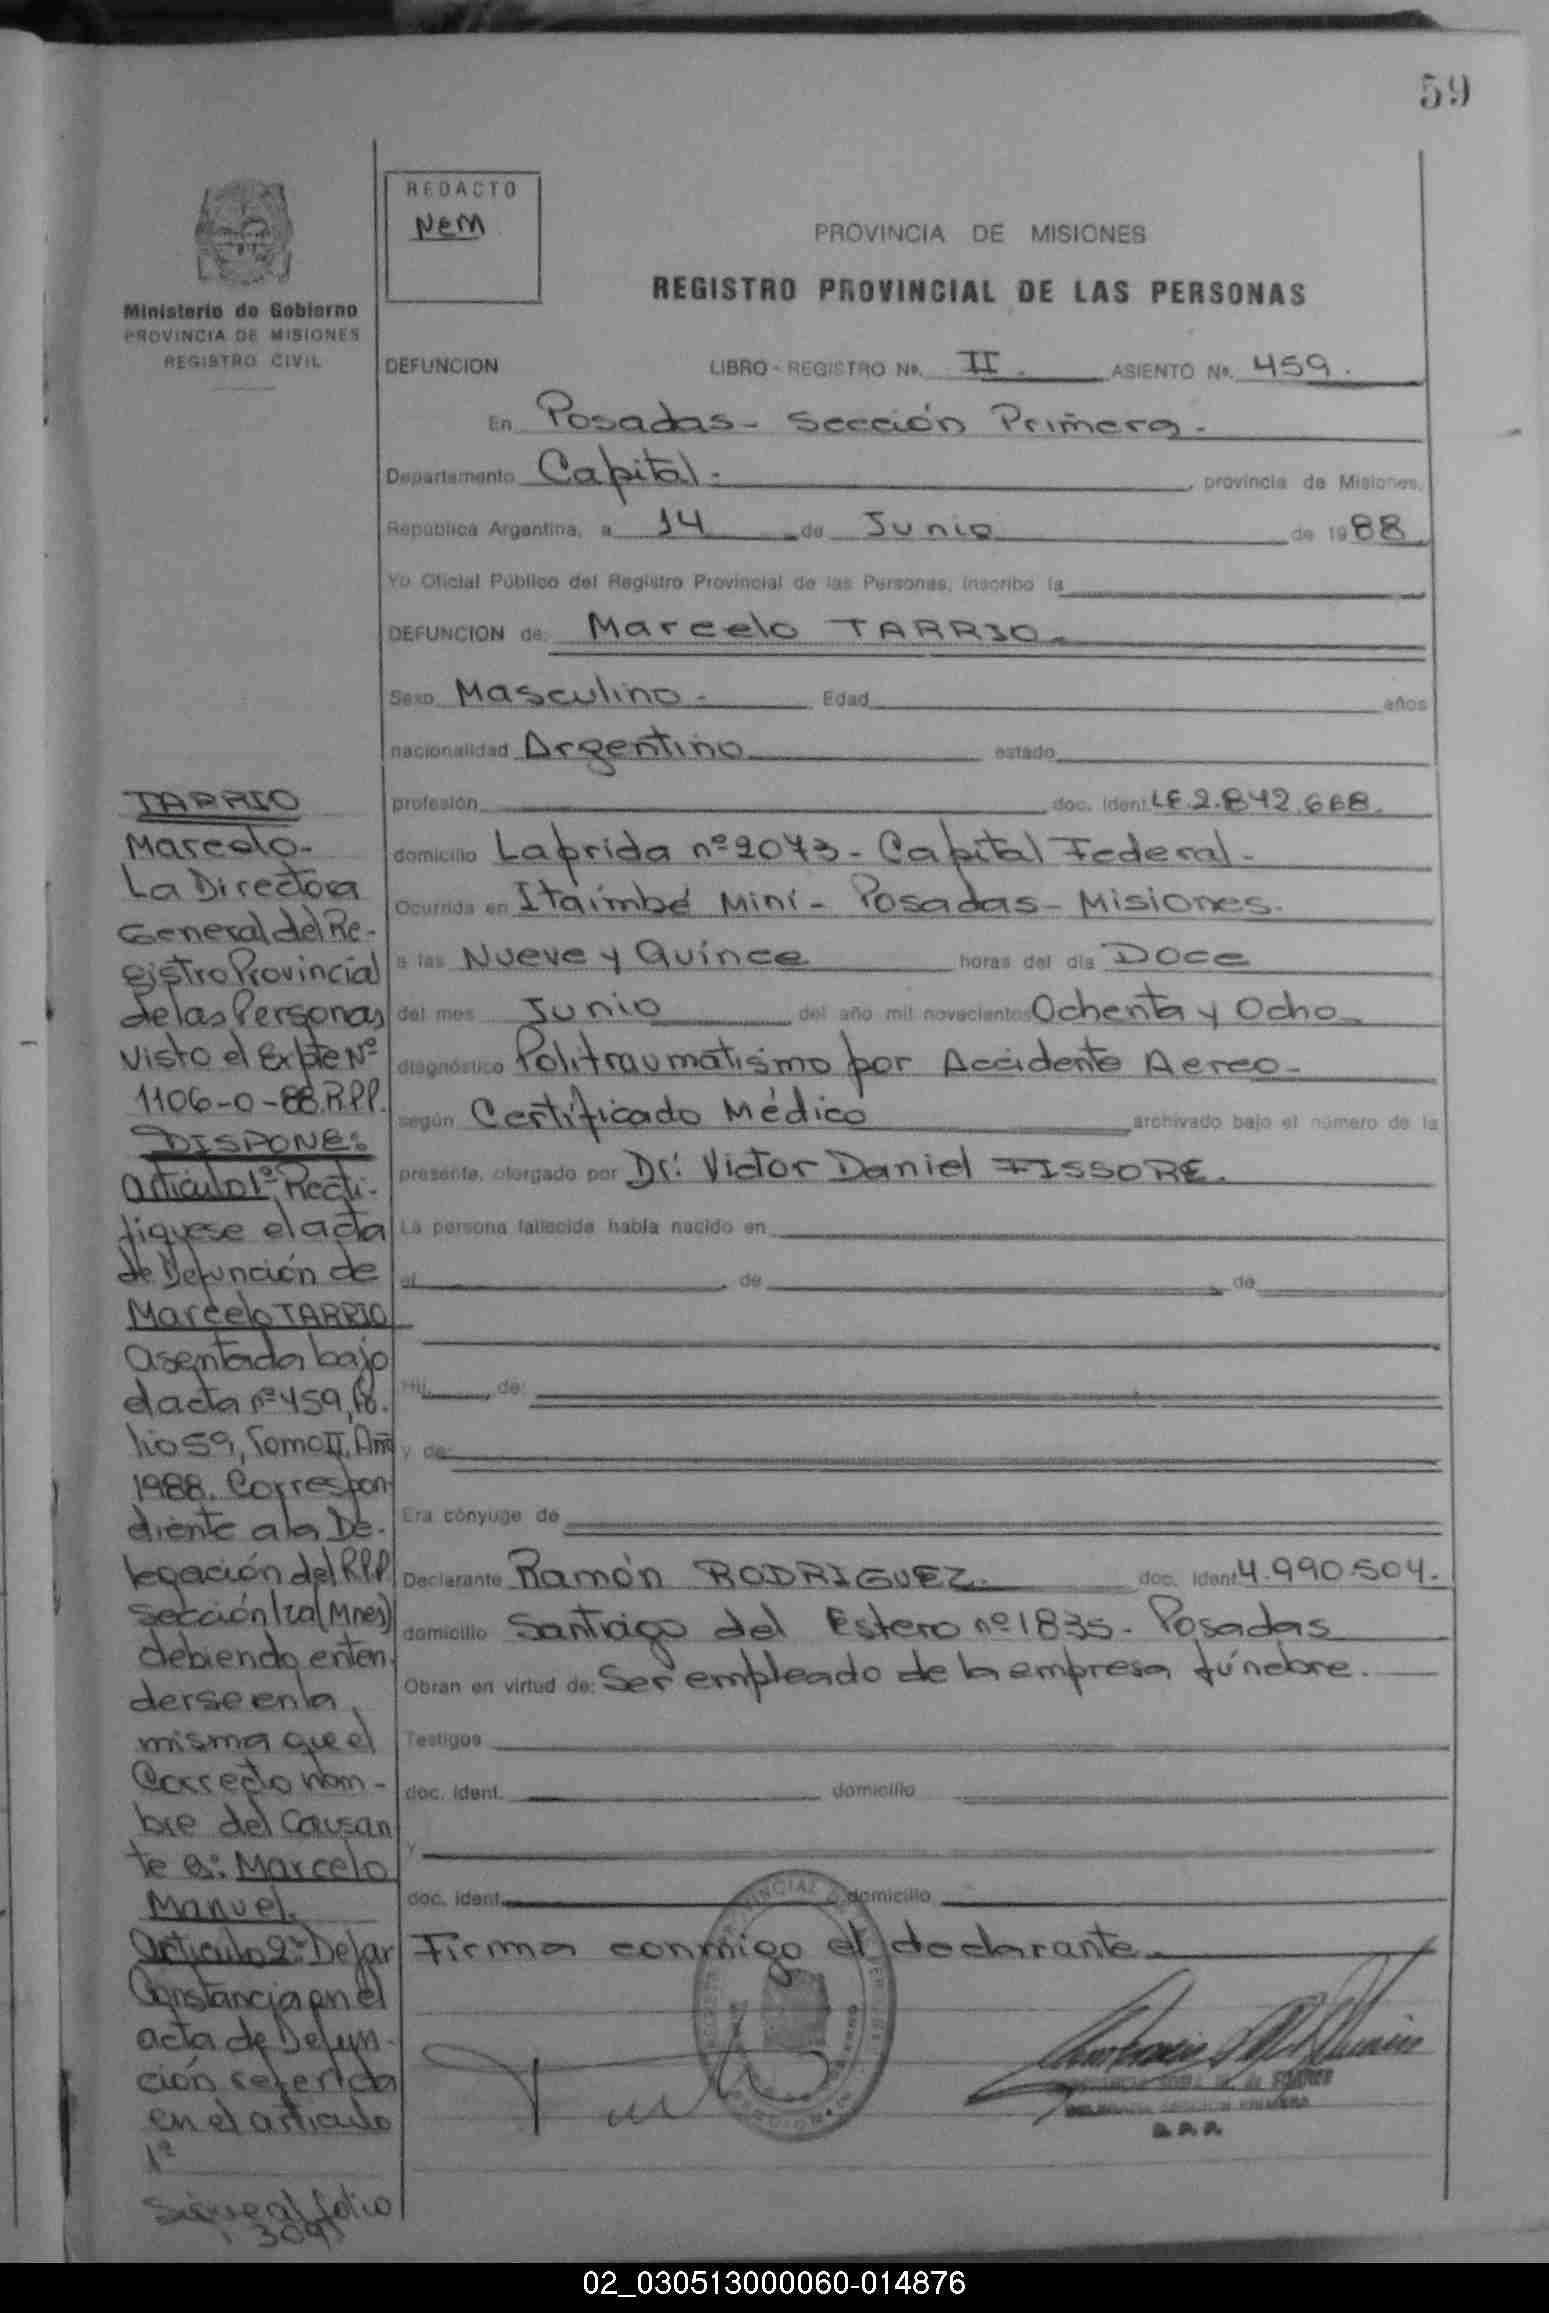 59
REDACTO
NEM
PROVINCIA DE MISIONES
REGISTRO PROVINCIAL DE LAS PERSONAS
Ministerio de Gobierno
PROVINCIA DE MISIONES
REGISTRO CIVIL
DEFUNCION LIBRO - REGISTRO Nº. II. ASIENTO Nº. 459.
En Posadas - Sección Primera.
Departamento Capital. , provincia de Misiones,
República Argentina, a 14 de Junio de 1988
Yo Oficial Público del Registro Provincial de las Personas, inscribo la
DEFUNCION de: Marcelo TARRIO.
Sexo Masculino - Edad años
nacionalidad Argentino estado
profesión doc. ident. LE.2.842.668.
domicilio Laprida nº 2073 - Capital Federal -
Ocurrida en Itaimbé Miní - Posadas - Misiones.
a las Nueve y Quince horas del día Doce
del mes Junio del año mil novecientos Ochenta y Ocho
diagnóstico Politraumatismo por Accidente Aereo -
según Certificado Médico archivado bajo el número de la
presente, otorgado por Dr. Victor Daniel FISSORE.
La persona fallecida había nacido en
el , de , de
Hij , de:
y de:
Era cónyuge de
Declarante Ramón RODRIGUEZ. doc. ident 4.990.504.
domicilio Santiago del Estero nº 1835 - Posadas
Obran en virtud de: Ser empleado de la empresa fúnebre.
Testigos
doc. ident. domicilio
y
doc. ident. domicilio
Firma conmigo el declarante.
TARRIO
Marcelo -
La Directora
General del Re-
gistro Provincial
de las Personas
visto el Expte Nº
1106-0-88.R.P.P.
DISPONE:
Artículo 1º: Recti-
fíquese el acta
de Defunción de
Marcelo TARRIO
asentada bajo
el acta nº 459, fo-
lio 59, Tomo II, Año
1988. Correspon-
diente a la De-
legación del R.P.P.
Sección 1ra (Mnes)
debiendo enten-
derse en la
misma que el
Correcto nom-
bre del Causan
te es: Marcelo
Manuel.
Artículo 2º: Dejar
Constancia en el
acta de Defun-
ción referida
en el artículo
1º
Sigue al folio
309
R.P.P.
02_030513000060-014876